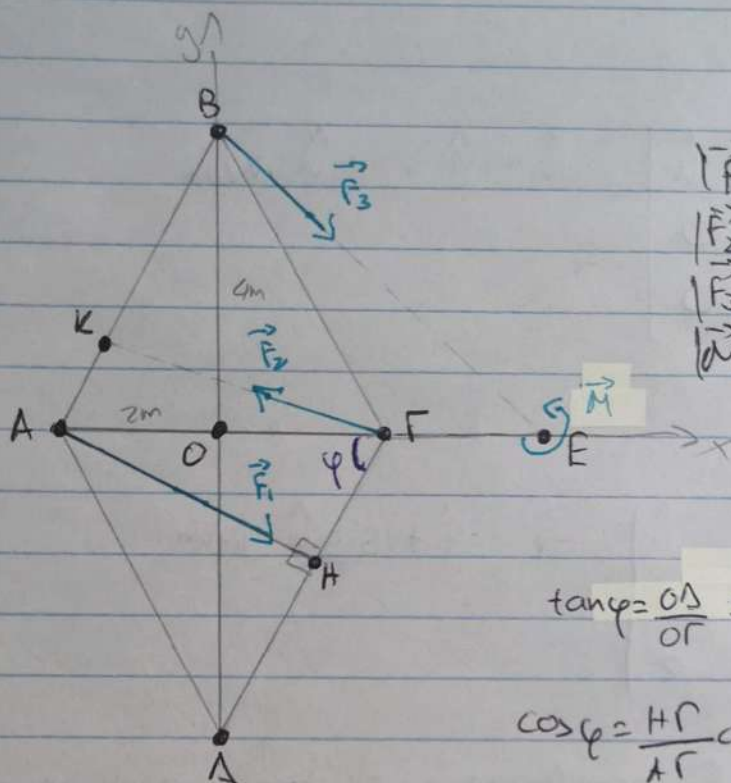 y
B
F⃗₃
4m
K
F⃗₂
M⃗
A
2m
O
Γ
E
x
φ
F⃗₁
H
tanφ = ΟΔ/ΟΓ
cosφ = ΗΓ/ΑΓ
Δ